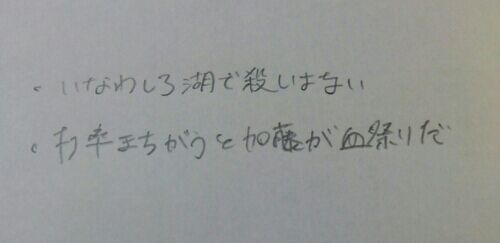 ・いなわしろ湖で殺しはない
・打率まちがうと加藤が血祭りだ